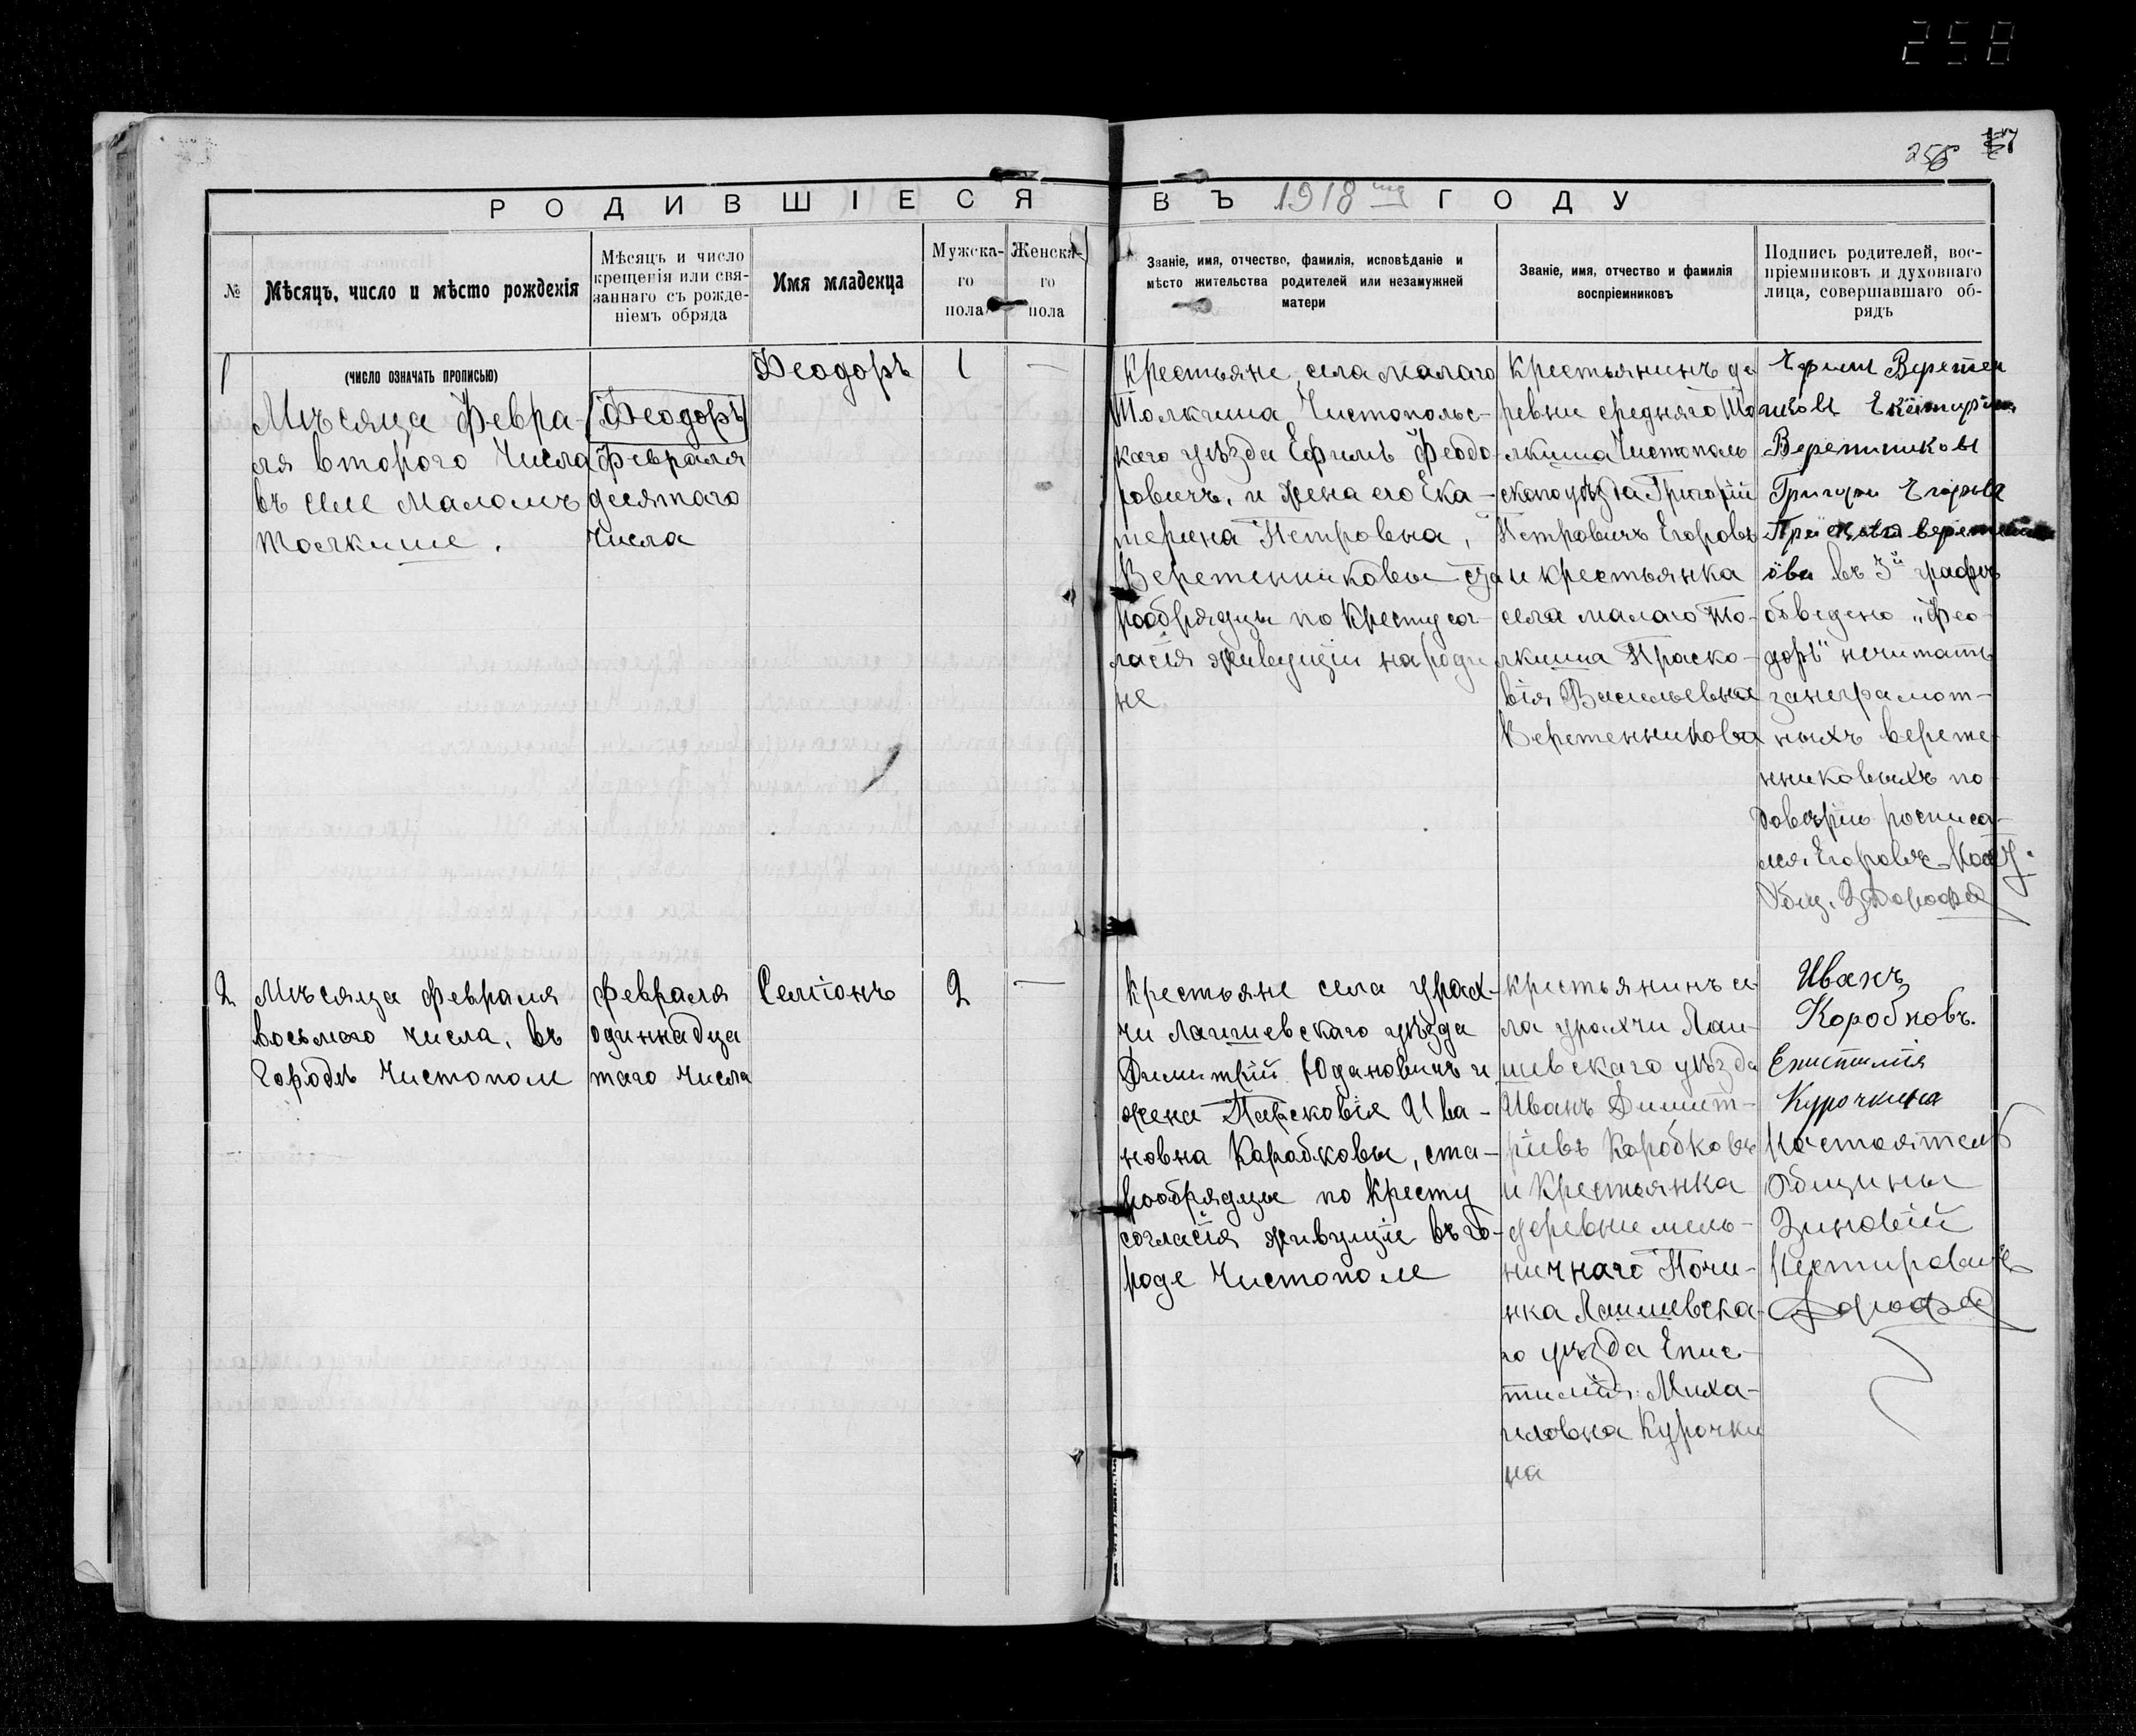 258
258
РОДИВШІЕСЯ ВЪ 1918 ГОДУ
№
Мѣсяцъ, число и мѣсто рожденія
Мѣсяцъ и число
крещенія или свя-
заннаго съ рожде-
ніемъ обряда
Имя младенца
Мужска-
го
пола
Женска-
го
пола
Званіе, имя, отчество, фамилія, исповѣданіе и
мѣсто жительства родителей или незамужней
матери
Званіе, имя, отчество и фамилія
воспріемниковъ
Подпись родителей, вос-
пріемниковъ и духовнаго
лица, совершавшаго об-
рядъ
1
(ЧИСЛО ОЗНАЧАТЬ ПРОПИСЬЮ)
Мѣсяца Февра-
ля второго Числа
въ селе Маломъ
толкише.
Феодоръ
Февраля
десятаго
числа
Феодоръ
1
—
Крестьяне села малаго
Толкиша Чистопольс-
каго уѣзда Ефимъ Феодо-
ровичъ и жена его Ека-
терина Петровна,
Веретенниковы ста
рообрядцы по Кресту сог-
ласія живущіи на роди
не
Крестьянинъ де
ревни средняго То
лкиша Чистополь
скаго уѣзда Григорій
Петровичъ Егоровъ
и крестьянка
села малаго То-
лкиша Праско-
вія Васильевна
Веретенникова
Ефим Веретен
никовы Екатирина
Веретниковы
Григори Егоровъ
Прасковя веретенник
ова въ 3й графѣ
обведено „Фео-
доръ" нечитать
занеграмот-
ныхъ верете-
нниковыхъ по
довѣрію росписа-
лся Егоровъ Наст.
Общ. З Дорофе
2
Мѣсяца февраля
восьмого числа, въ
Городѣ Чистополе
февраля
одиннадца
таго числа
Семіонъ
2
—
Крестьяне села урах-
чи Лаишевскаго уѣзда
Димитрій Юдановичъ и
жена Парсковія Ива-
новна Карабковы, ста-
рообрядцы по Кресту
согласія живущіе въ го-
роде Чистополе
крестьянинъ се
ла урахчи Лаи-
шевскаго уѣзда
Иванъ Димит-
ріевъ Коробковъ
и Крестьянка
деревни мель-
ничнаго Почи-
нка Лаишевска-
го уѣзда Епис-
тимія Миха-
иловна Курочки
на
Иванъ
Коробковъ.
Епистимія
Курочкина
Настоятель
Общины
Зиновій
Нестировичъ
Дорофе